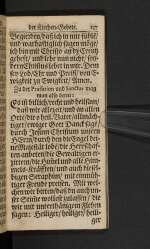 der Kirchen-Gebete. 197
Begierden/ daß ich in mir fühle/
und warhafftiglich sagen möge/
ich bin mit Christo ans Creutz
gehefft/ und lebe nun nicht/ son-
dern Christus lebet in mir. Dem
sey Lob/ Ehr und Preiß/ von E-
wigkeit zu Ewigkeit/ Amen.
Zu der Præfation und Sanctus mag
man also beten:
Es ist billich/ recht und heilsam/
daß wir allezeit/ und an allen
Orten/ dir/ heil. Vater/ allmäch-
tiger/ ewiger Gott Danck sagen/
durch Jesum Christum unsern
HErrn/ durch den die Engel dei-
ne Majestät loben/ die Herrschaff-
ten anbeten/ die Gewaltigen er-
zittern/ die Himmel und alle Him-
mels-Kräfften/ und auch die seli-
gen Seraphim/ mit einmüthi-
ger Freude preisen. Mit wel-
chen wir bitten/ daß du auch un-
ser Stimm wollest zulassen/ die
wir mit unterthänigem flehen
sagen: Heiliger/ heiliger/ heili-
ger